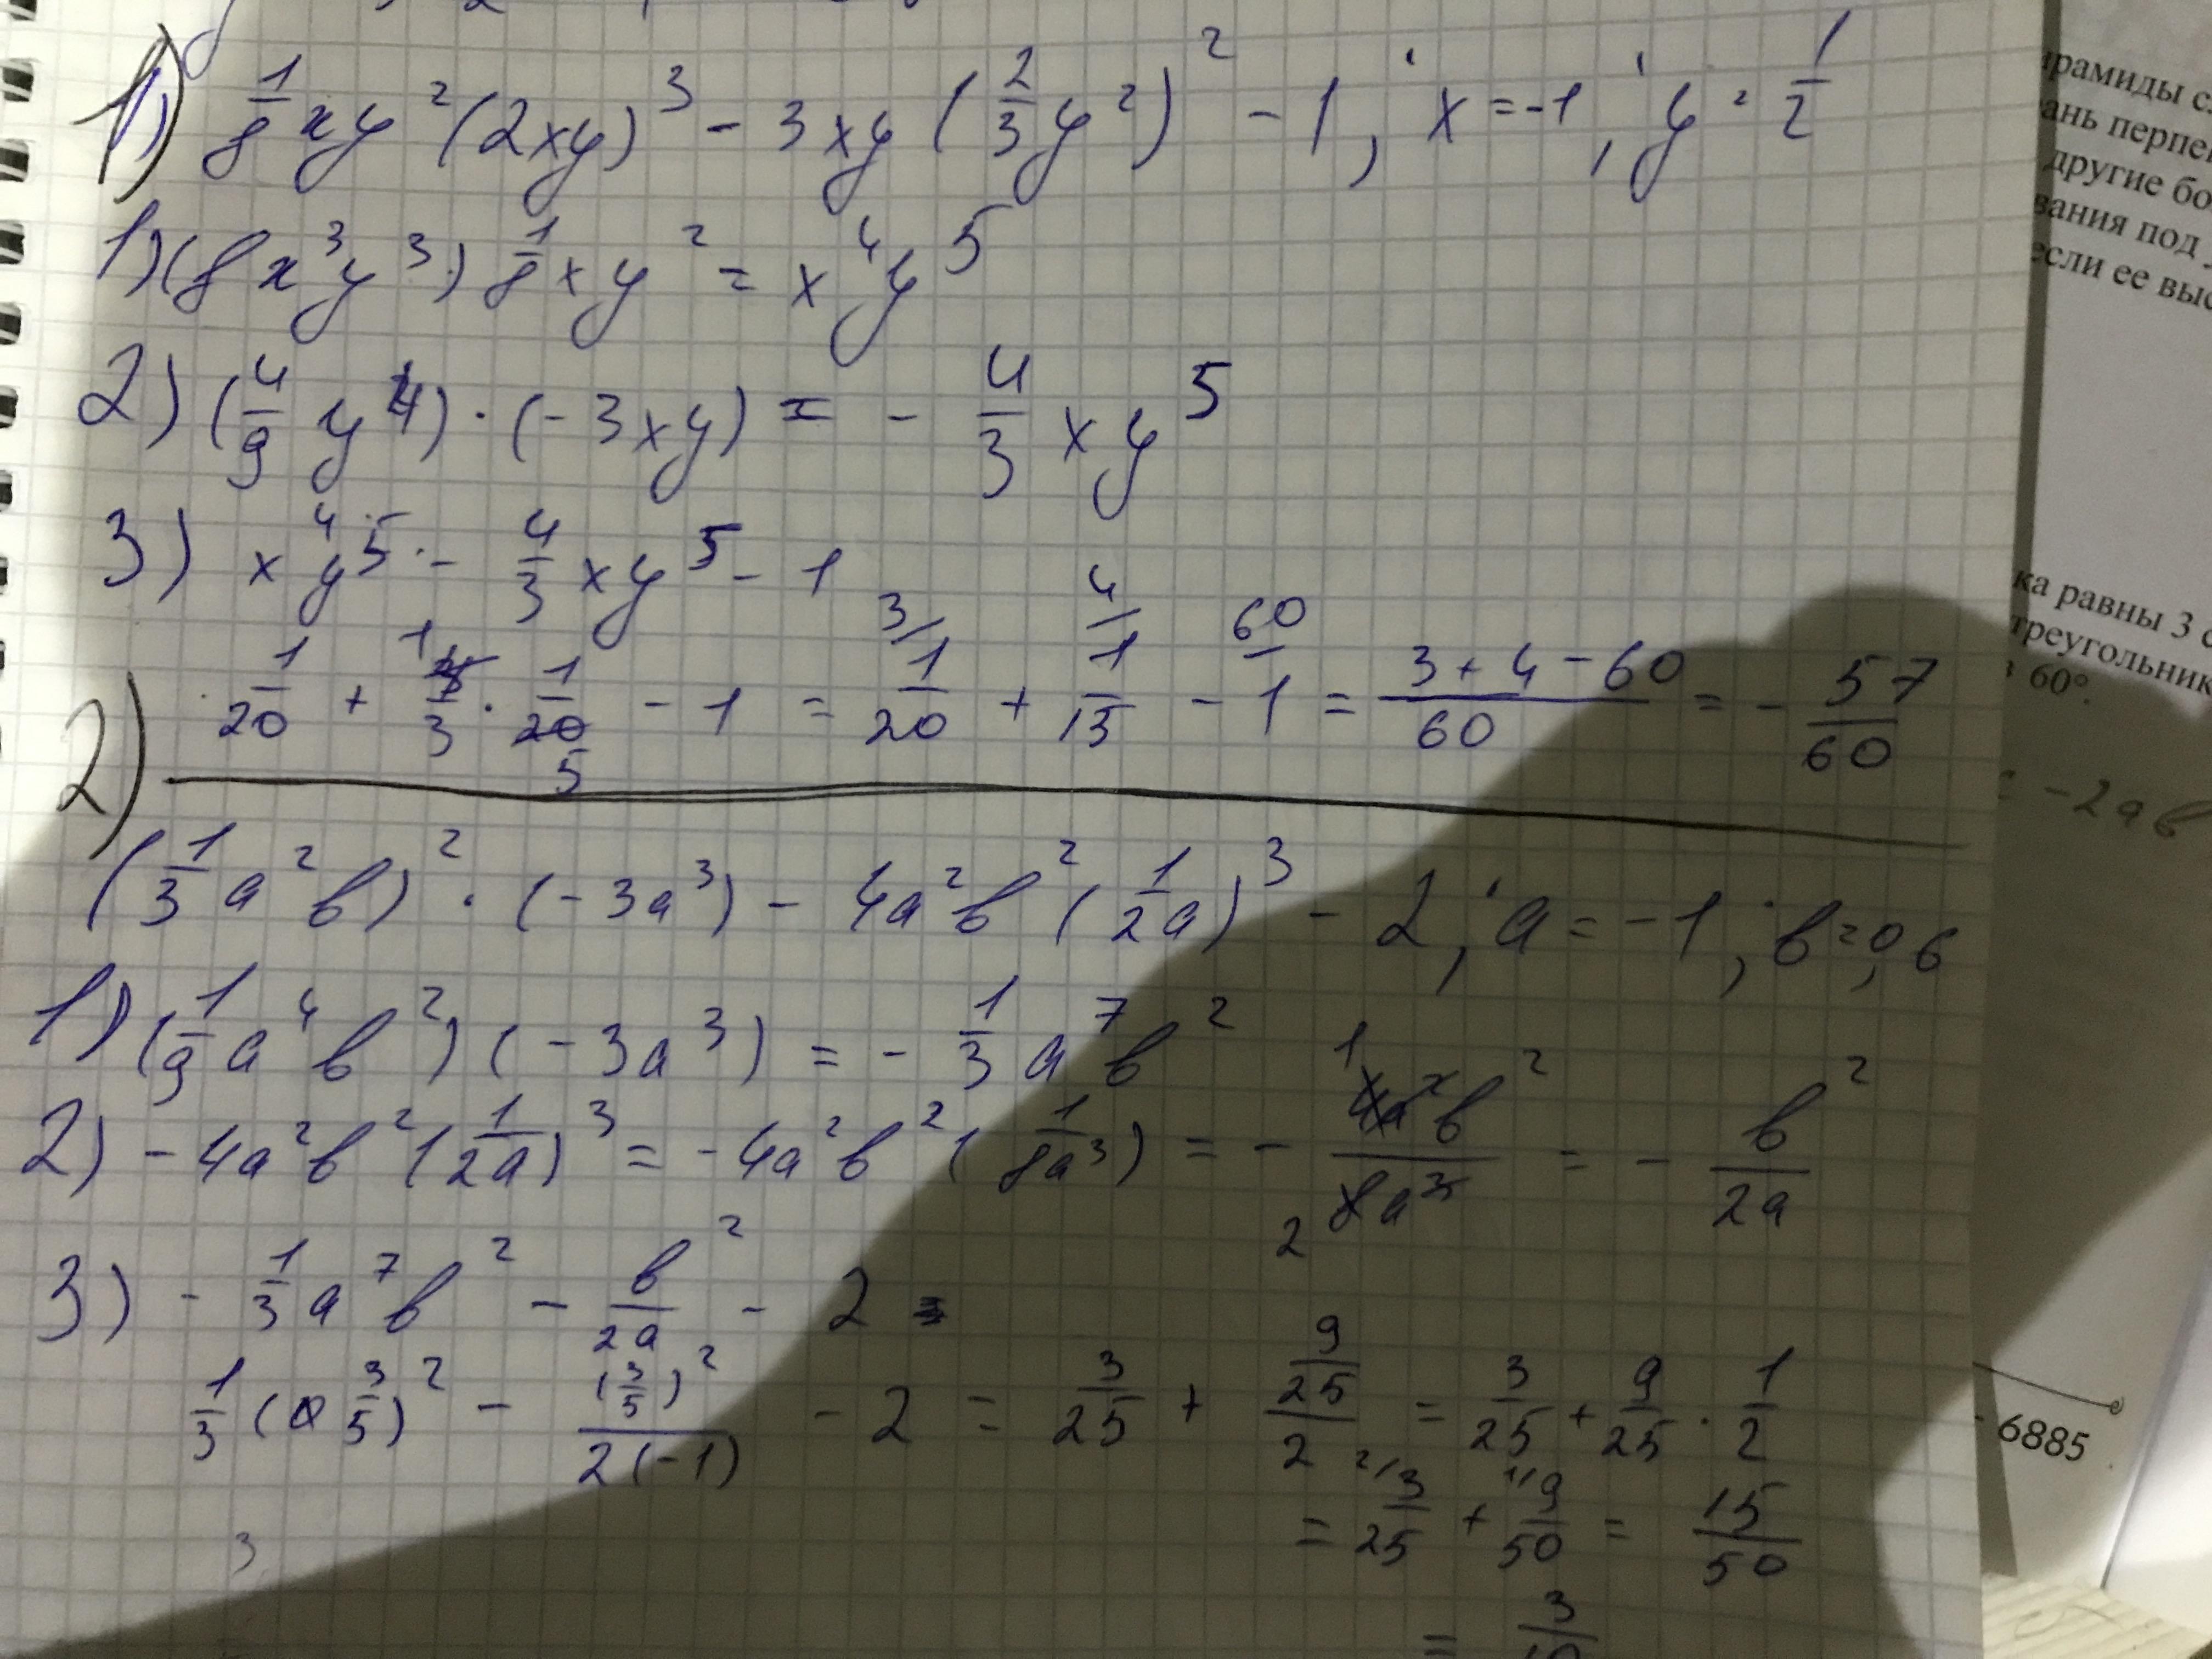 1) 1/8 xy²(2xy)³ - 3xy(2/3 y²)² - 1, x = -1, y = 1/2
1) (8x³y³) 1/8 xy² = x⁴y⁵
2) (4/9 y⁴) · (-3xy) = - 4/3 xy⁵
3) x⁴y⁵ - 4/3 xy⁵ - 1
1/20 + 4/3 · 1/20 - 1 = 1/20 + 1/15 - 1 = (3 + 4 - 60)/60 = - 57/60
2)
(1/3 a²в)² · (-3a³) - 4a²в²(1/2a)³ - 2, a = -1, в = 0,6
1) (1/9 a⁴в²)(-3a³) = - 1/3 a⁷в²
2) -4a²в²(1/2a)³ = -4a²в²(1/8a³) = - 4a²в²/8a³ = - в²/2a
3) - 1/3 a⁷в² - в²/2a - 2 =
1/3 (3/5)² - (3/5)²/2(-1) - 2 = 3/25 + 9/25/2 = 3/25 + 9/25 · 1/2
= 3/25 + 9/50 = 15/50
= 3/10
ирамиды
перпен
другие бо
вания под
если ее выс
ка равны 3 с
треугольник
60°.
-2aв
6885